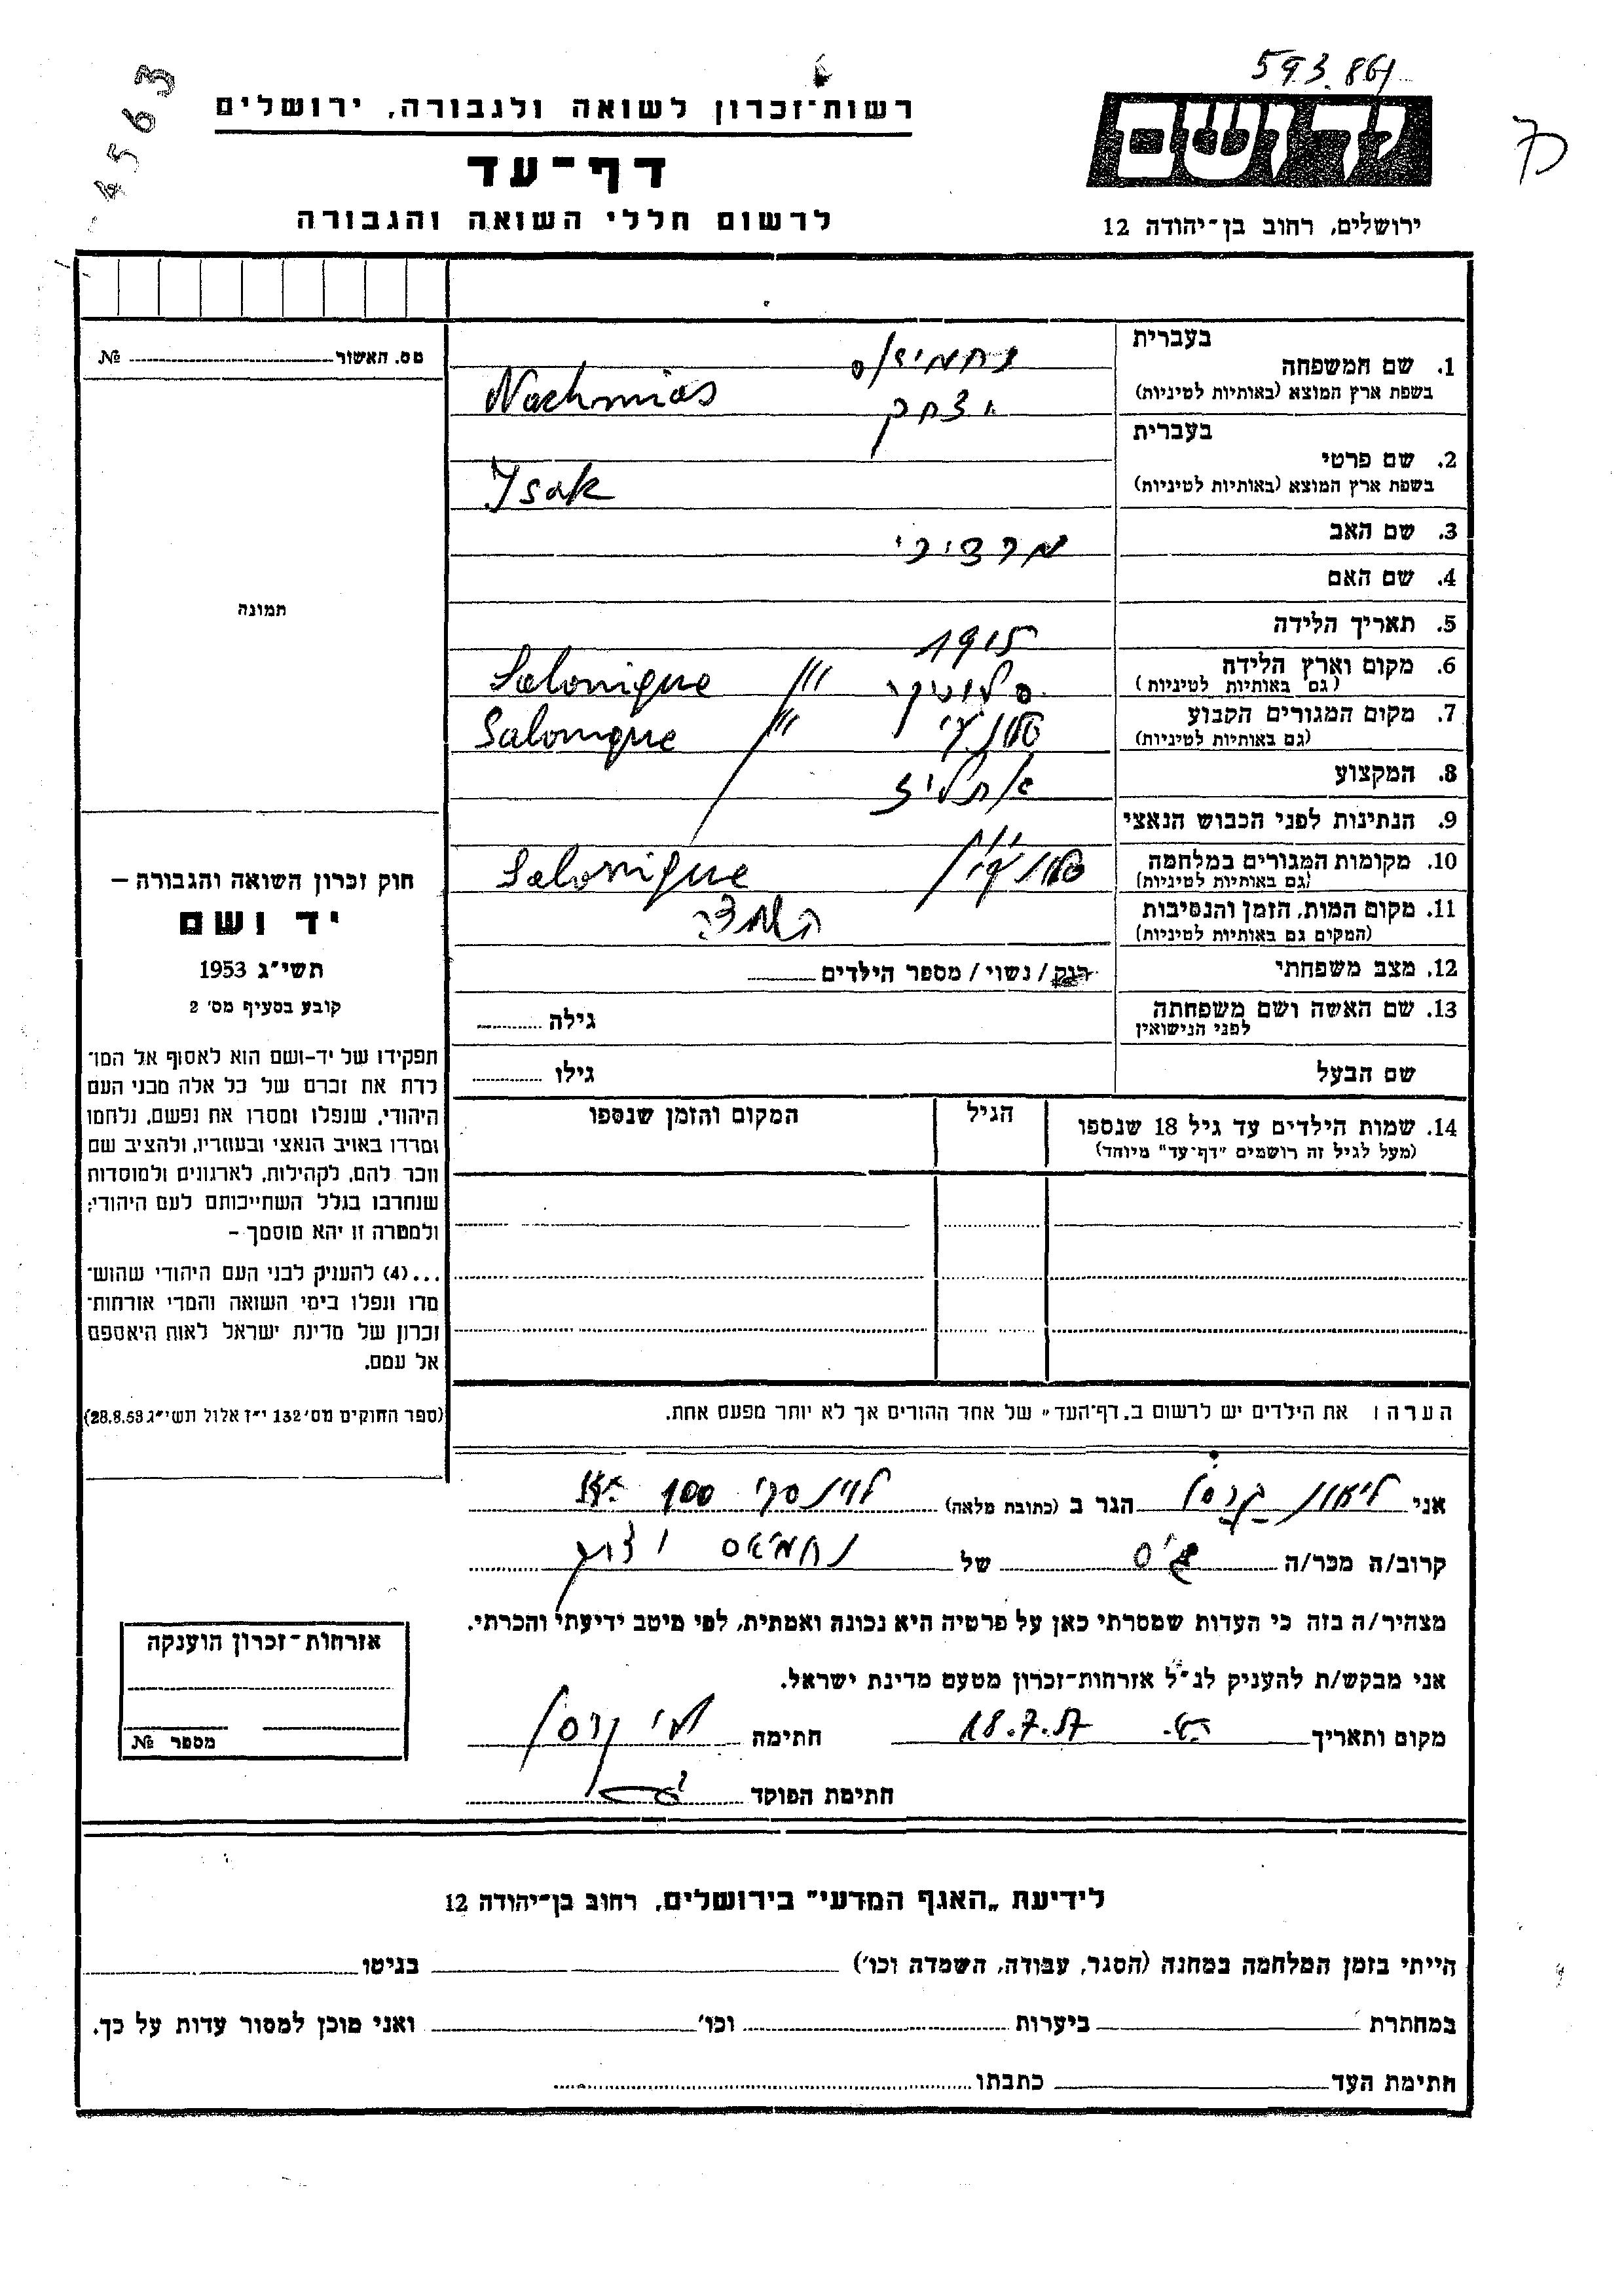 593.861
4563
יד ושם
ירושלים, רחוב בן־יהודה 12
רשות־זכרון לשואה ולגבורה, ירושלים
דף־עד
לרשום חללי השואה והגבורה
מס. האשור № 
תמונה
חוק זכרון השואה והגבורה –
יד ושם
תשי״ג 1953
קובע בסעיף מס׳ 2
תפקידו של יד-ושם הוא לאסוף אל המו־
לדת את זכרם של כל אלה מבני העם
היהודי, שנפלו ומסרו את נפשם, נלחמו
ומרדו באויב הנאצי ובעוזריו, ולהציב שם
וזכר להם, לקהילות, לארגונים ולמוסדות
שנחרבו בגלל השתייכותם לעם היהודי;
ולמטרה זו יהא מוסמך –
...(4) להעניק לבני העם היהודי שהוש־
מדו ונפלו בימי השואה והמרי אזרחות־
זכרון של מדינת ישראל לאות היאספם
אל עמם.
(ספר החוקים מס׳ 132 י״ז אלול תשי״ג 28.8.53)
בעברית
1. שם המשפחה נחמיאס
בשפת ארץ המוצא (באותיות לטיניות) Nachmias
בעברית יצחק
2. שם פרטי
בשפת ארץ המוצא (באותיות לטיניות) Isak
3. שם האב מרדכי
4. שם האם
5. תאריך הלידה 1915
6. מקום וארץ הלידה סלוניקי Salonique
(גם באותיות לטיניות)
7. מקום המגורים הקבוע סלוניקי Salonique
(גם באותיות לטיניות)
8. המקצוע
9. הנתינות לפני הכבוש הנאצי
10. מקומות המגורים במלחמה סלוניקי Salonique
(גם באותיות לטיניות)
11. מקום המות, הזמן והנסיבות
(המקום גם באותיות לטיניות)
12. מצב משפחתי רווק / נשוי / מספר הילדים
13. שם האשה ושם משפחתה גילה
לפני הנישואין
שם הבעל גילו
14. שמות הילדים עד גיל 18 שנספו הגיל המקום והזמן שנספו
(מעל לגיל זה רושמים "דף־עד" מיוחד)
הערה: את הילדים יש לרשום ב„דף־העד״ של אחד ההורים אך לא יותר מפעם אחת.
אני ליאון הגר ב (כתובת מלאה) לוינסקי 100 ת״א
קרוב/ה מכר/ה גיס של נחמיאס יצחק
מצהיר/ה בזה כי העדות שמסרתי כאן על פרטיה היא נכונה ואמתית, לפי מיטב ידיעתי והכרתי.
אני מבקש/ת להעניק לנ״ל אזרחות־זכרון מטעם מדינת ישראל.
מקום ותאריך ת״א 18.7.57 חתימה
חתימת הפוקד
אזרחות־זכרון הוענקה
מספר №
לידיעת „האגף המדעי״ בירושלים, רחוב בן־יהודה 12
הייתי בזמן המלחמה במחנה (הסגר, עבודה, השמדה וכו׳) בגיטו
במחתרת ביערות וכו׳ ואני מוכן למסור עדות על כך.
חתימת העד כתבתו